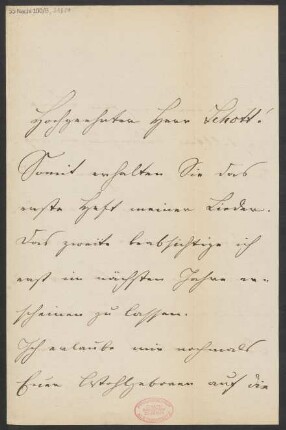 Hochgeehrter Herr Schott!
Somit erhalten Sie das
erste Heft meiner Lieder.
Das zweite beabsichtige ich
erst im nächsten Jahre er-
scheinen zu lassen.
Ich erlaube mir nochmals
Euer Wohlgeboren auf die